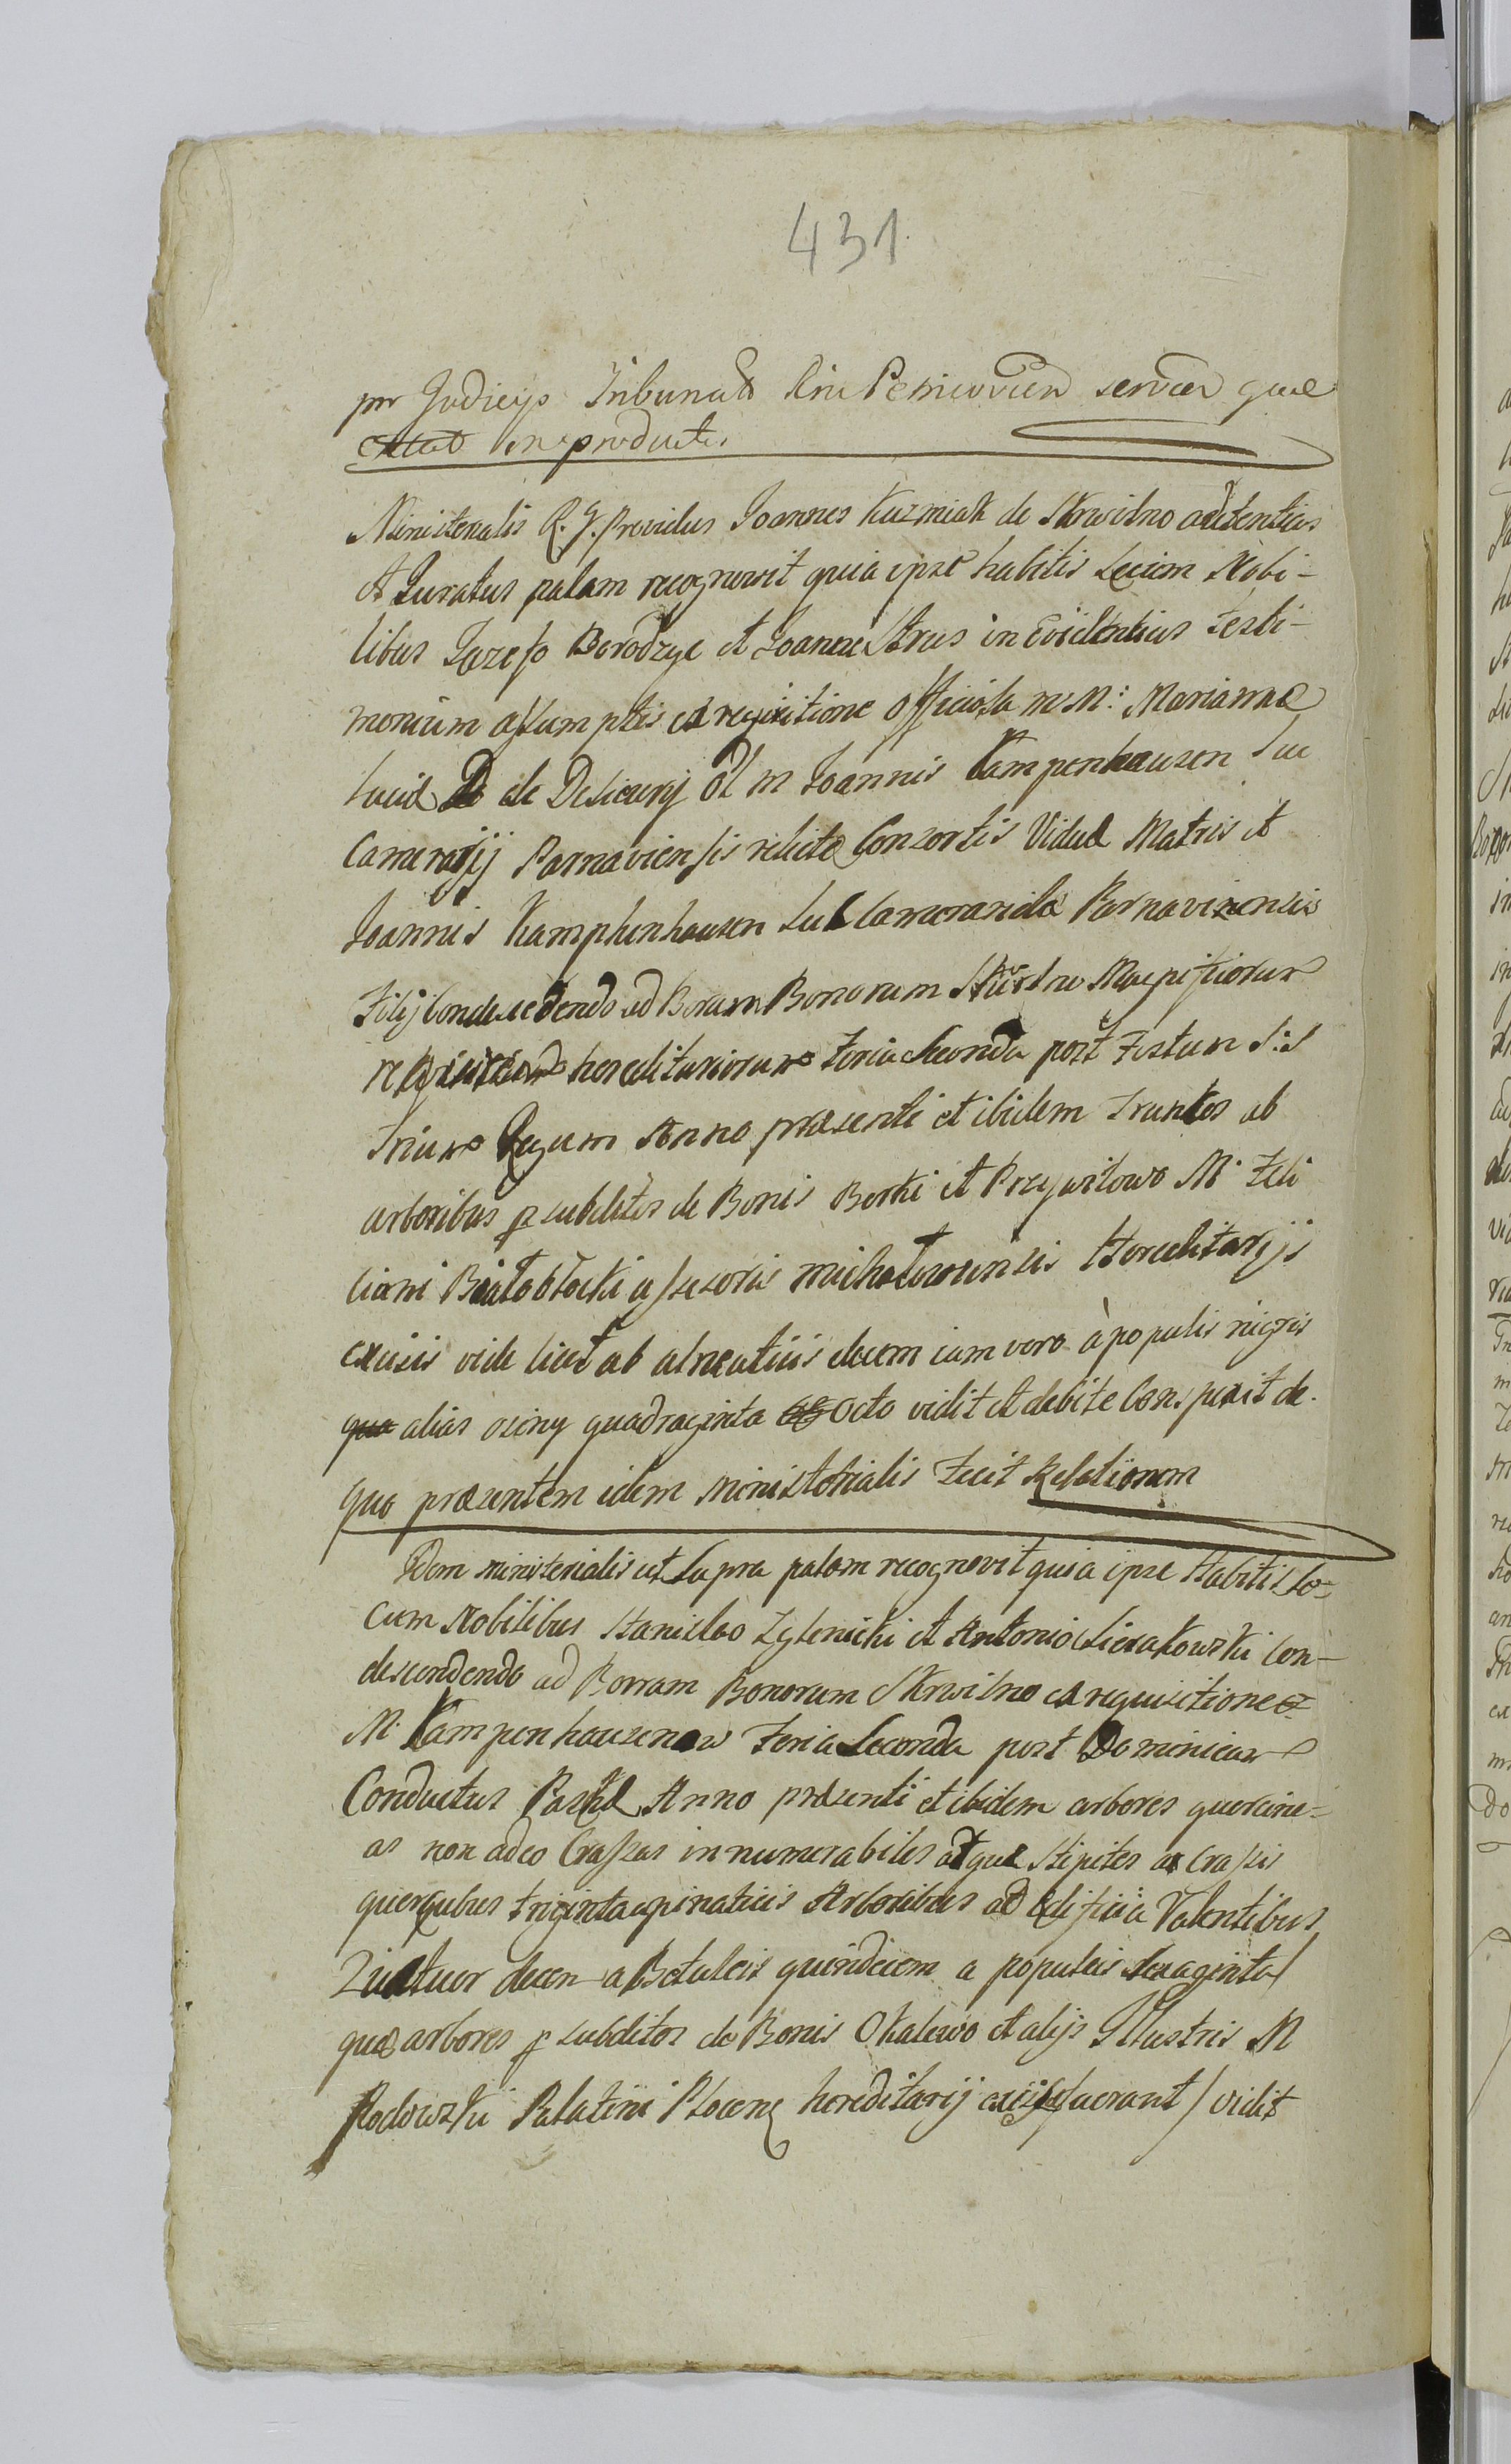 431
pr Judicijs Tribunalis servien quae
in productis
Ministerialis R. J. Providus Joannes Kuzmiak de Skrwilno autenticus
et Juratus palam recognovit quia ipse habitis secum Nobi-
libus Jozefo Borodzyc et Joanne Strus in Evidentius Testi-
monium assumptis ex requisitione Officiosa m M: Marianna
de ol m Joannis Kampenhauzen Suc
Camerarij Parnaviensis relicte Conzortis Vidue Matris et
Joannis Kamphenhauzen Suc Camerarida Parnavizensis
Filij Condescedendo ad Boram Bonorum Skrwilno Magnificorum
hereditariorum Feria Seconda post Festum S:S
Trium Regum Anno prezenti et ibidem Truncos ab
arboribus p subditos de Bonis Borki et Przywitowo M. Feli
ciani Białobłocki assesoris michałowiensis Hereditarijs
excisis vide licet ab alneaticis decem iam vero à populis nigris
alias osiny quadraginta Octo vidit et debite Conspexit de.
quo prezentem idem ministerialis Fecit Relationem
Idem ministerialis ut Supra palam recognovit quia ipse Habitis se=
cum Nobilibus Stanislao Zglenicki et Antonio Sierakowski Con-
descendendo ad Borram Bonorum Skrwilno ex requisitione
M. Kampenhauzenow Feria Seconda post Dominicam
Conductus Paske Anno prezenti et ibidem arbores quercine=
as non adeo Crassas innumerabiles atque Stipites a Crassis
quercubus triginta a pinaticis Arboribus ad edificia Valentibus
Quatuor decem a Betuleis quindecem a populeis Sexaginta/
quas arbores p subditos de Bonis Okalewo et alijs Illustris M
Podowski Palatini Plocen hereditarij excise fuerant/ vidit